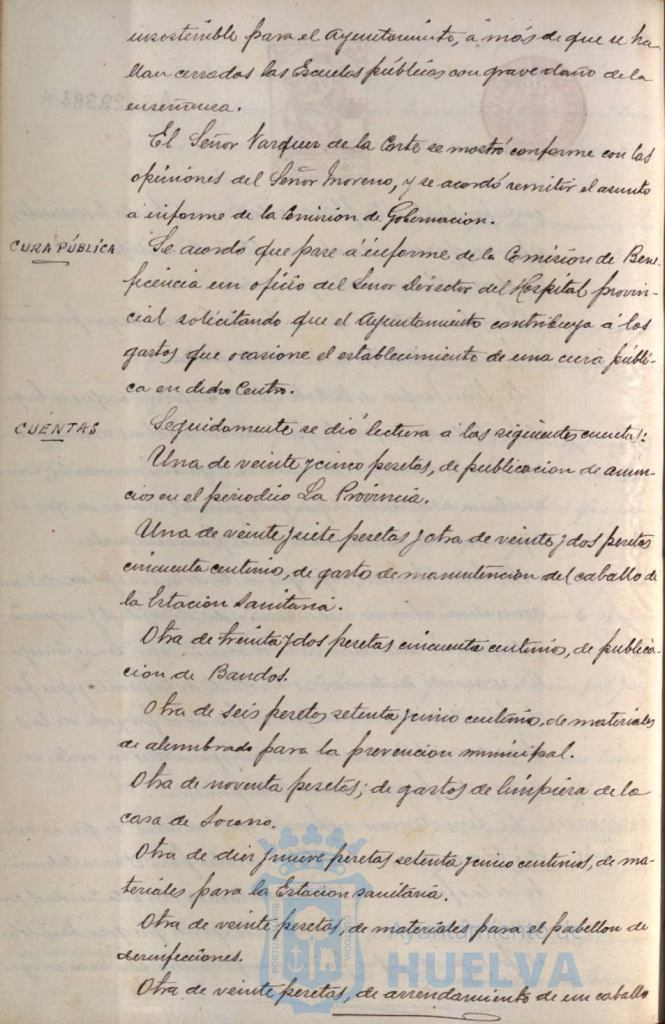 insostenible para el Ayuntamiento, á más de que se ha-
llan cerradas las Escuelas públicas con grave daño de la
enseñanza.
El Señor Vazquez de la Corte se mostró conforme con las
opiniones del Señor Moreno, y se acordó remitir el asunto
a informe de la Comisión de Gobernacion.
CURA PÚBLICA
Se acordó que pase á informe de la Comisión de Bene-
ficencia un oficio del Señor Director del Hospital provin-
cial solicitando que el Ayuntamiento contribuya á los
gastos que ocasione el establecimiento de una cura públi-
ca en dicho Centro.
CUENTAS
Seguidamente se dió lectura a las siguientes cuentas:
Una de veinte y cinco pesetas, de publicacion de anun-
cios en el periodico La Provincia.
Una de veinte y siete pesetas y otra de veinte y dos pesetas
cincuenta centimos, de gasto de manutención del caballo de
la Estacion Sanitaria.
Otra de treinta y dos pesetas cincuenta centimos, de publica-
cion de Bandos.
Otra de seis pesetas setenta y cinco centimos, de materiales
de alumbrado para la prevencion municipal.
Otra de noventa pesetas; de gastos de limpieza de la
casa de Socorro.
Otra de diez y nueve pesetas setenta y cinco centimos, de ma-
teriales para la Estacion sanitaria.
Otra de veinte pesetas, de materiales para el pabellon de
desinfecciones.
Otra de veinte pesetas, de arrendamiento de un caballo
Ayuntamiento de
HUELVA